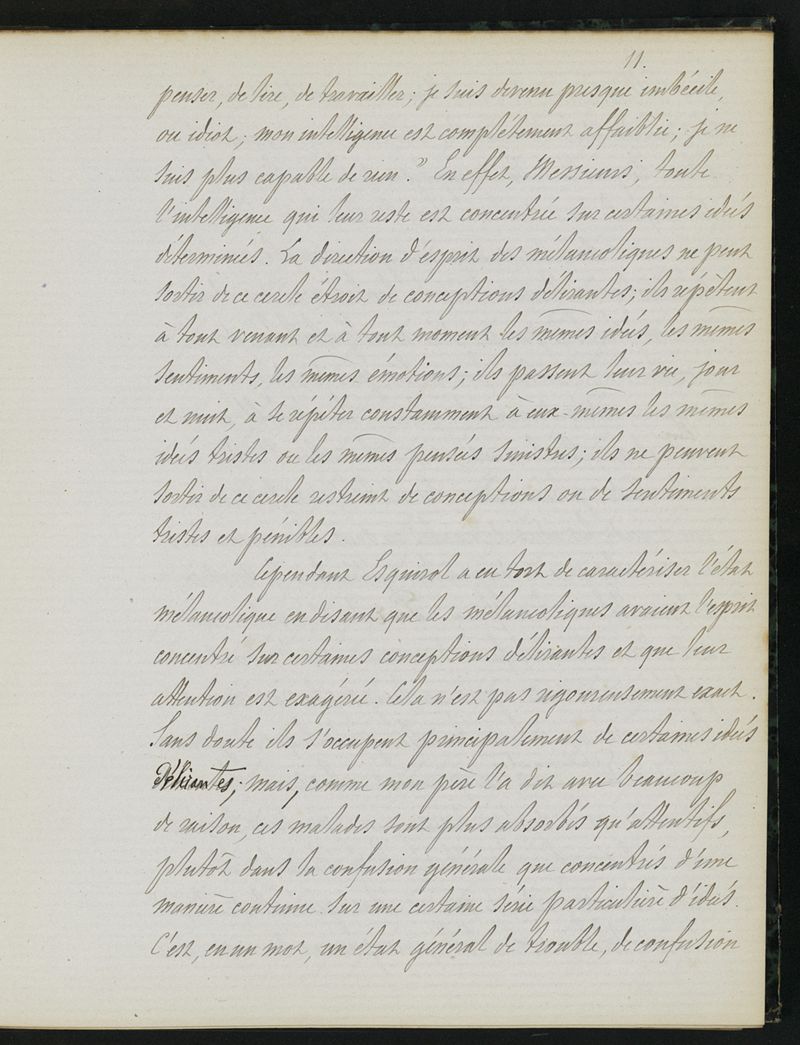 11.
penser, de lire, de travailler; je suis devenu presque imbécile,
ou idiot; mon intelligence est complétement affaiblie; je ne
suis plus capable de rien." En effet, Messieurs, toute
l'intelligence qui leur reste est concentrée sur certaines idées
déterminées. La direction d'esprit des mélancoliques ne peut
sortir de ce cercle étroit de conceptions délirantes; ils répètent
à tout venant et à tout moment les mêmes idées, les mêmes
sentiments, les mêmes émotions; ils passent leur vie, jour
et nuit, à se répéter constamment à eux-mêmes les mêmes
idées tristes ou les mêmes pensées sinistres; ils ne peuvent
sortir de ce cercle restreint de conceptions ou de sentiments
tristes et pénibles.
Cependant Esquirol a eu tort de caractériser l'état
mélancolique en disant que les mélancoliques avaient l'esprit
concentré sur certaines conceptions délirantes et que leur
attention est exagérée. Cela n'est pas rigoureusement exact.
Sans doute ils s'occupent principalement de certaines idées
délirantes; mais, comme mon père l'a dit avec beaucoup
de raison, ces malades sont plus absorbés qu'attentifs,
plutôt dans la confusion générale que concentrés d'une
manière continue sur une certaine série particulière d'idées.
C'est, en un mot, un état général de trouble, de confusion